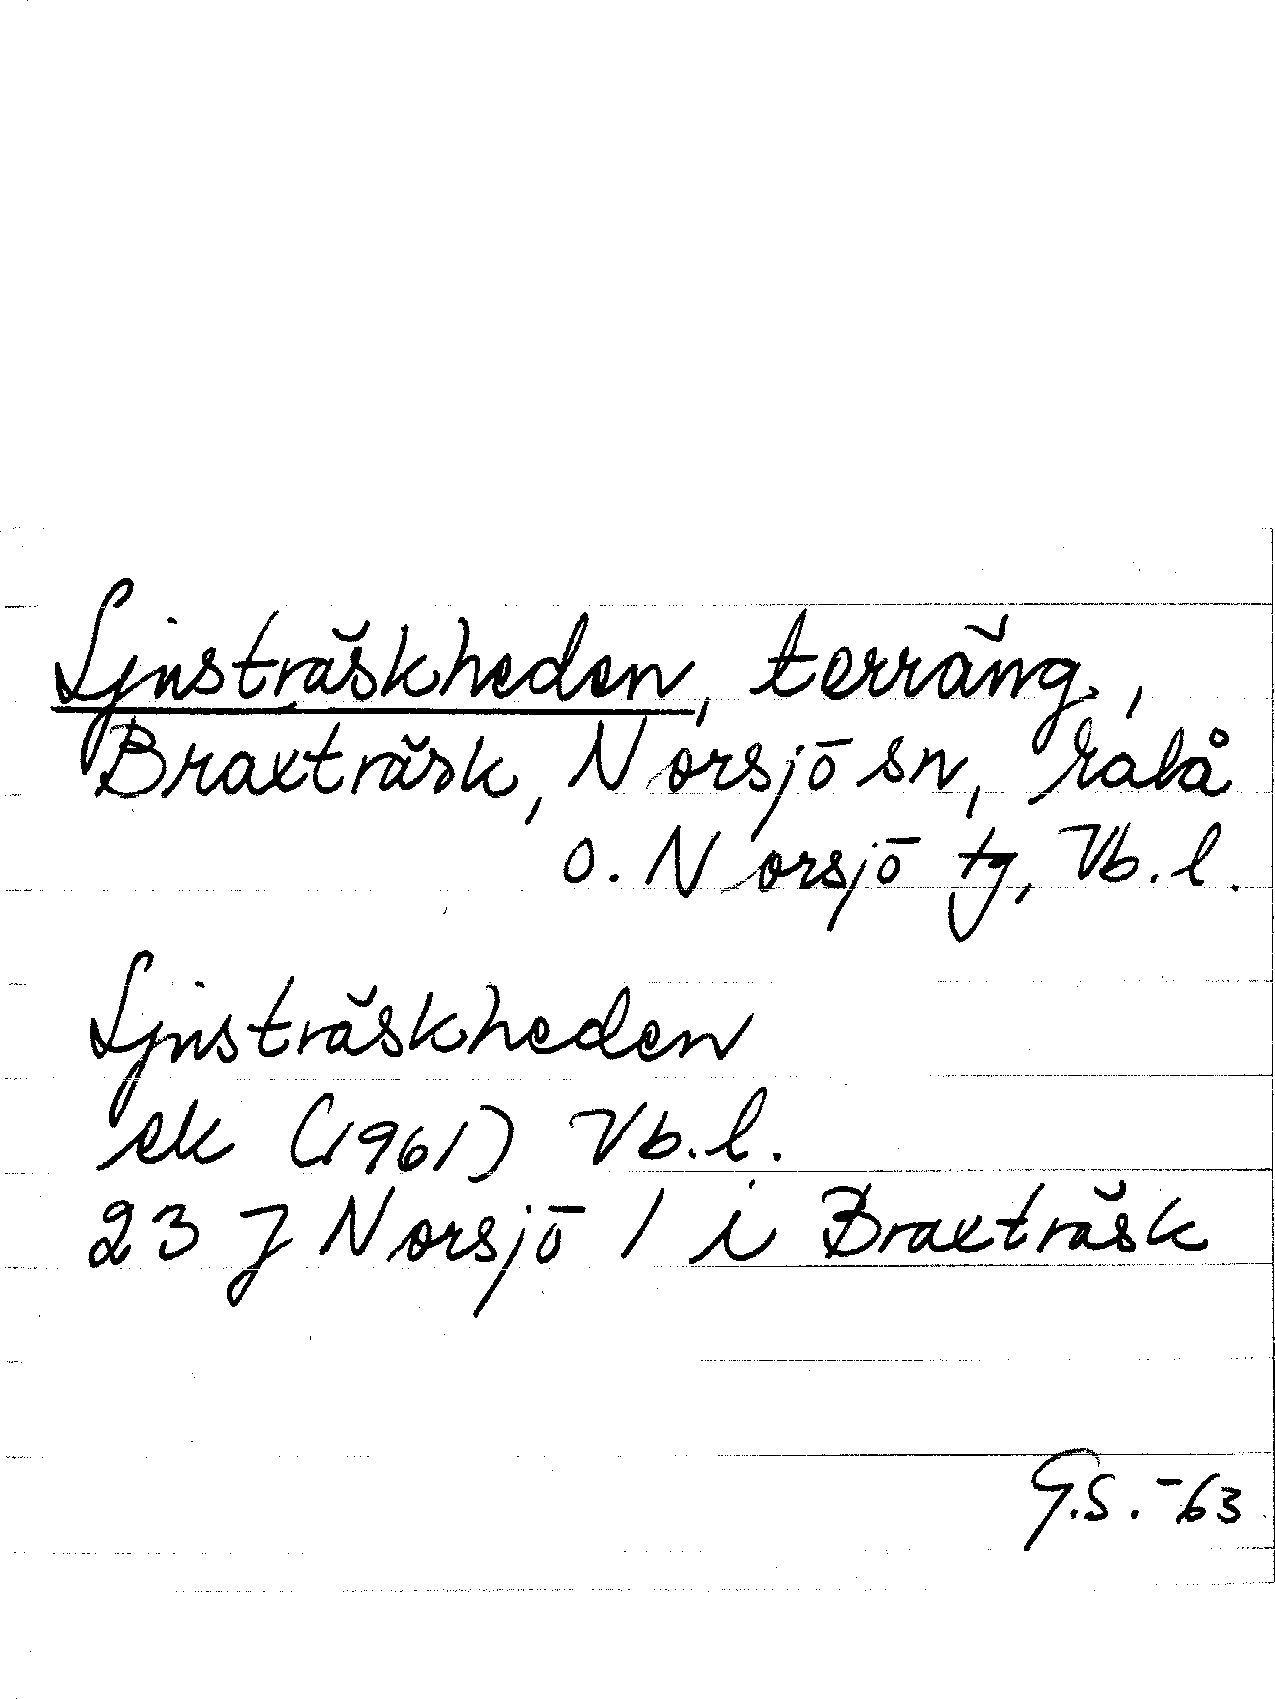 Ljusträskheden, terräng,
Braxträsk, Norsjö sn, Malå
o. Norsjö tg, Vb.l.
Ljusträskheden
ek (1961) Vb.l.
23 J Norsjö 1 i Braxträsk
G.S. -63